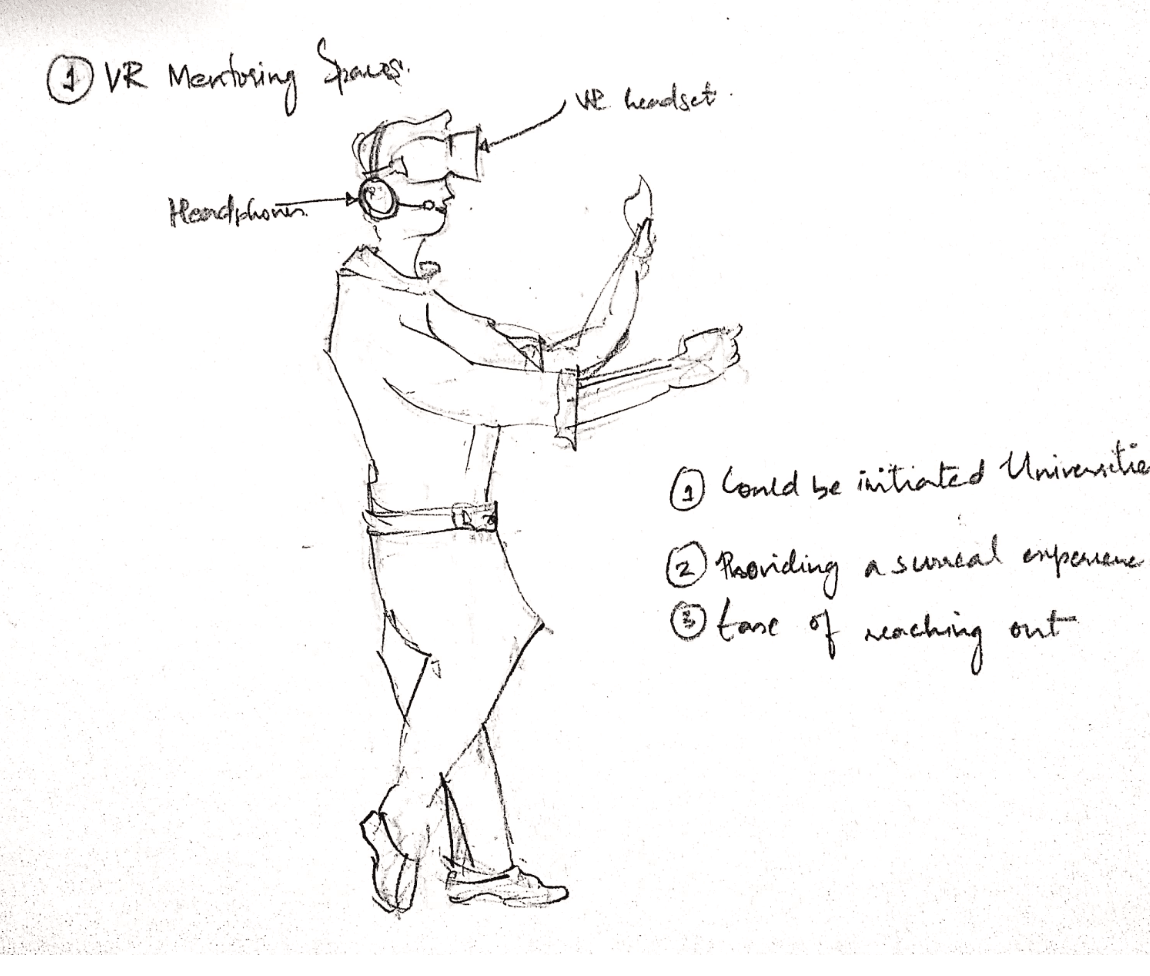 ① VR Mentoring Spaces.
VR headset.
Headphones
① Could be initiated Universitie
② Providing a surreal experience
③ Ease of reaching out